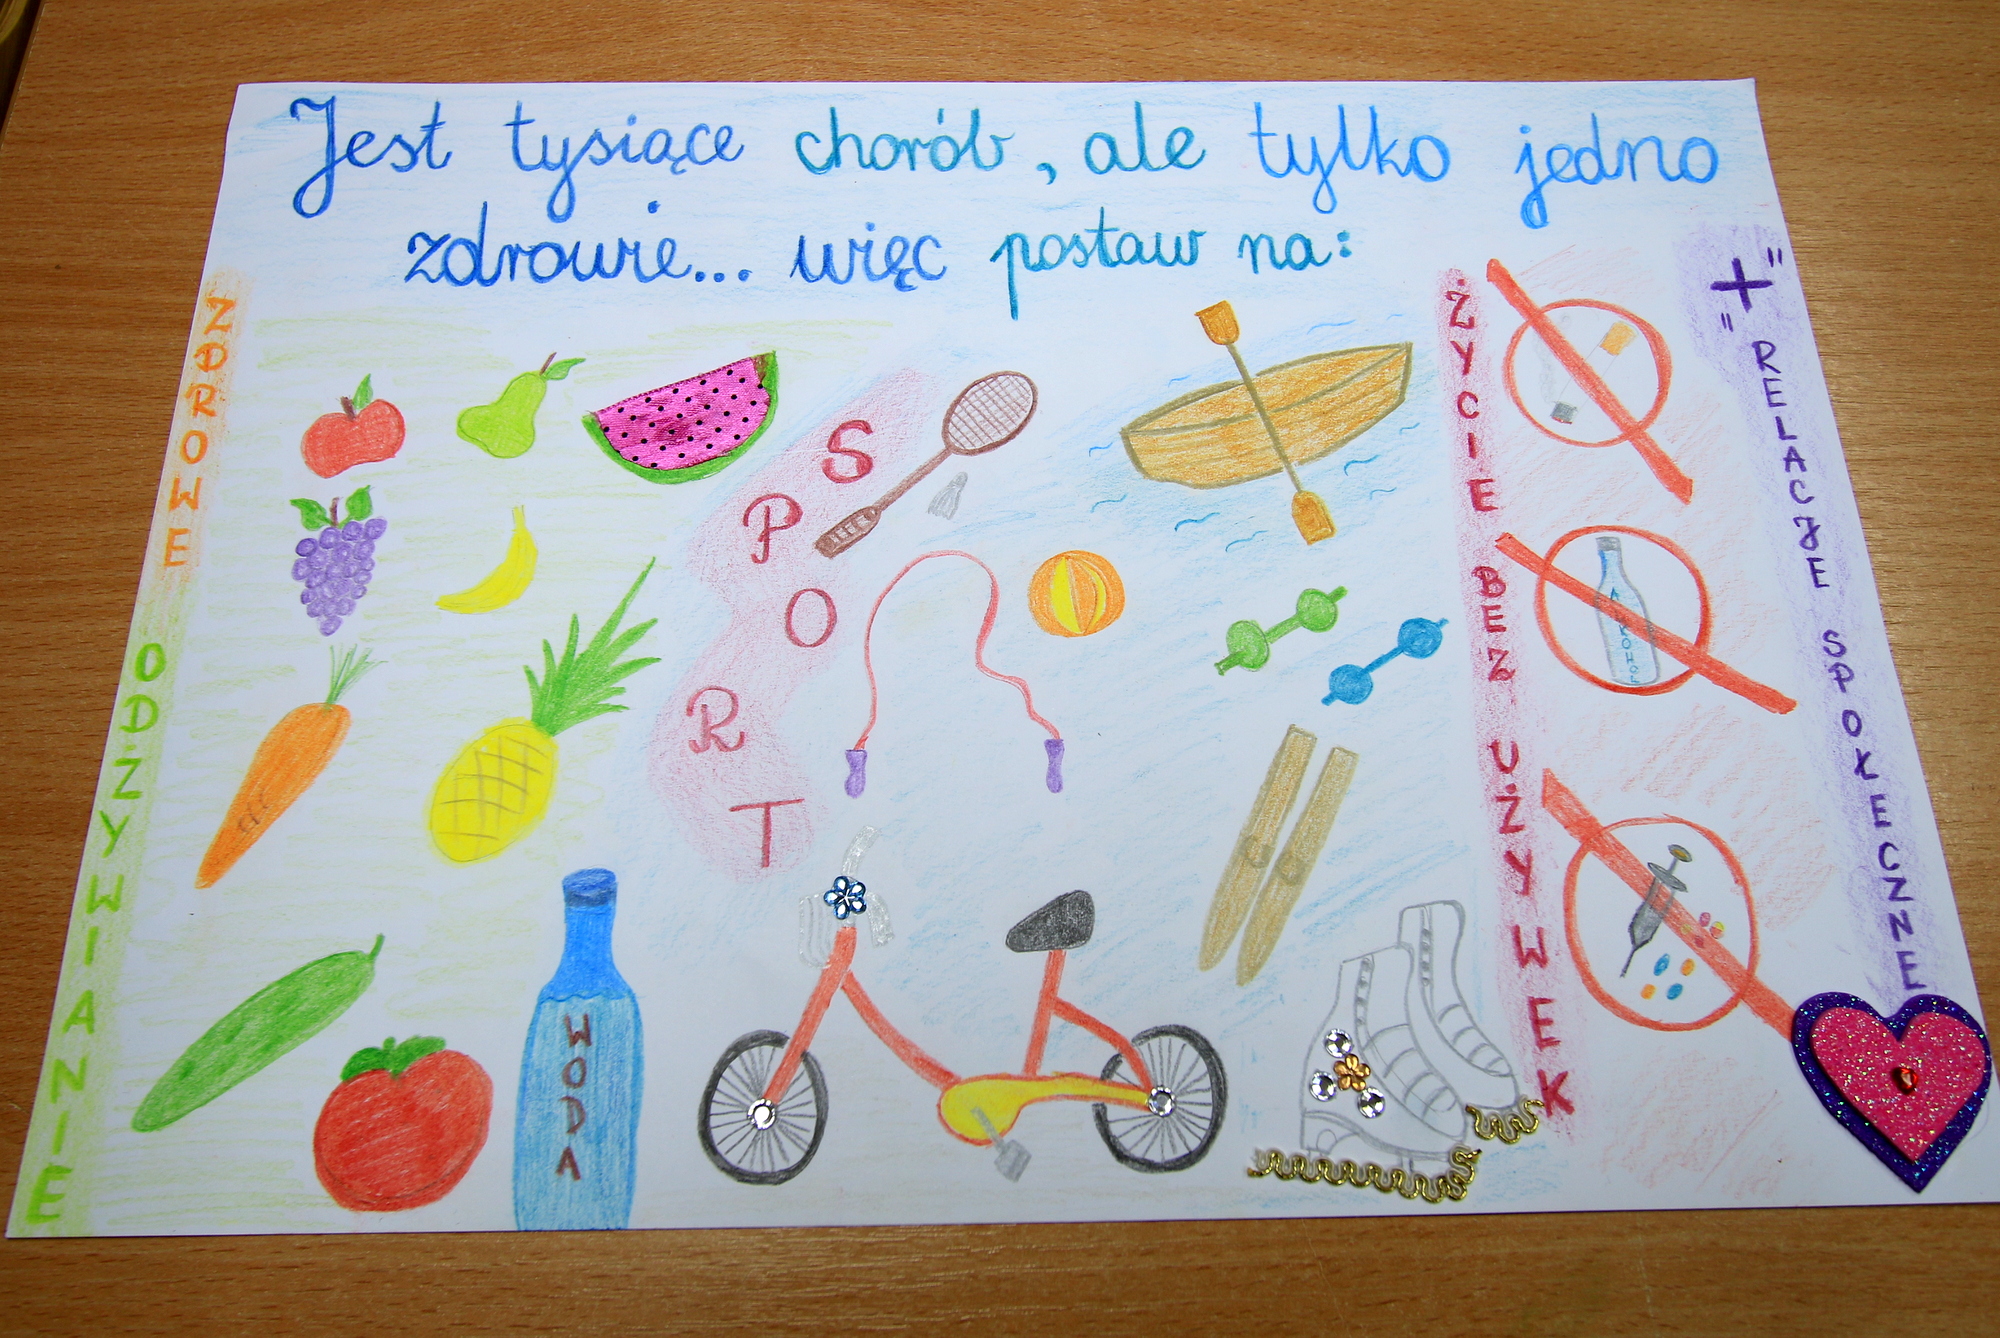 Jest tysiące chorób, ale tylko jedno
zdrowie... więc postaw na:
ZDROWE ODŻYWIANIE
WODA
SPORT
ŻYCIE BEZ UŻYWEK
ALKOHOL
"+"
RELACJE SPOŁECZNE